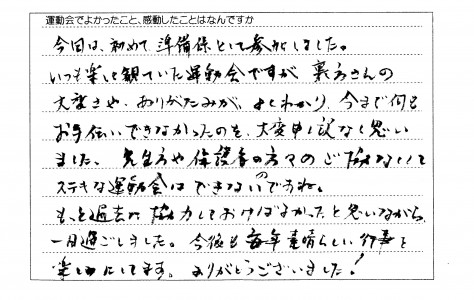 運動会でよかったこと、感動したことはなんですか
今回は、初めて準備係として参加しました。
いつも楽しく観ていた運動会ですが裏方さんの
大変さや、ありがたみが、よくわかり、今まで何も
お手伝いできなかったのを、大変申し訳なく思い
ました。先生方や保護者の方々のご協力なくして
ステキな運動会はできないのですね。
もっと過去に協力しておけばよかったと思いながら、
一日過ごしました。今後も毎年素晴らしい行事を
楽しみにしてます。ありがとうございました!